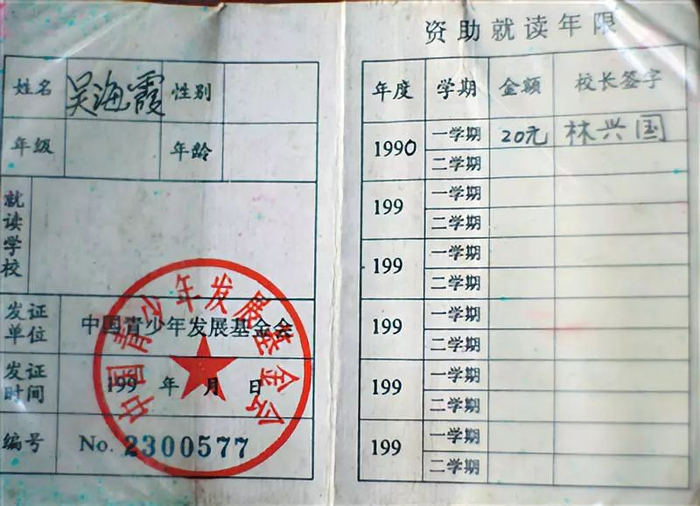 姓名 吴海霞 性别
年级 年龄
就读学校
发证单位 中国青少年发展基金会
发证时间 199 年 月 日
编号 No. 2300577
中国青少年发展基金会
资助就读年限
年度 学期 金额 校长签字
1990 一学期 20元 林兴国
二学期
199 一学期
二学期
199 一学期
二学期
199 一学期
二学期
199 一学期
二学期
199 一学期
二学期